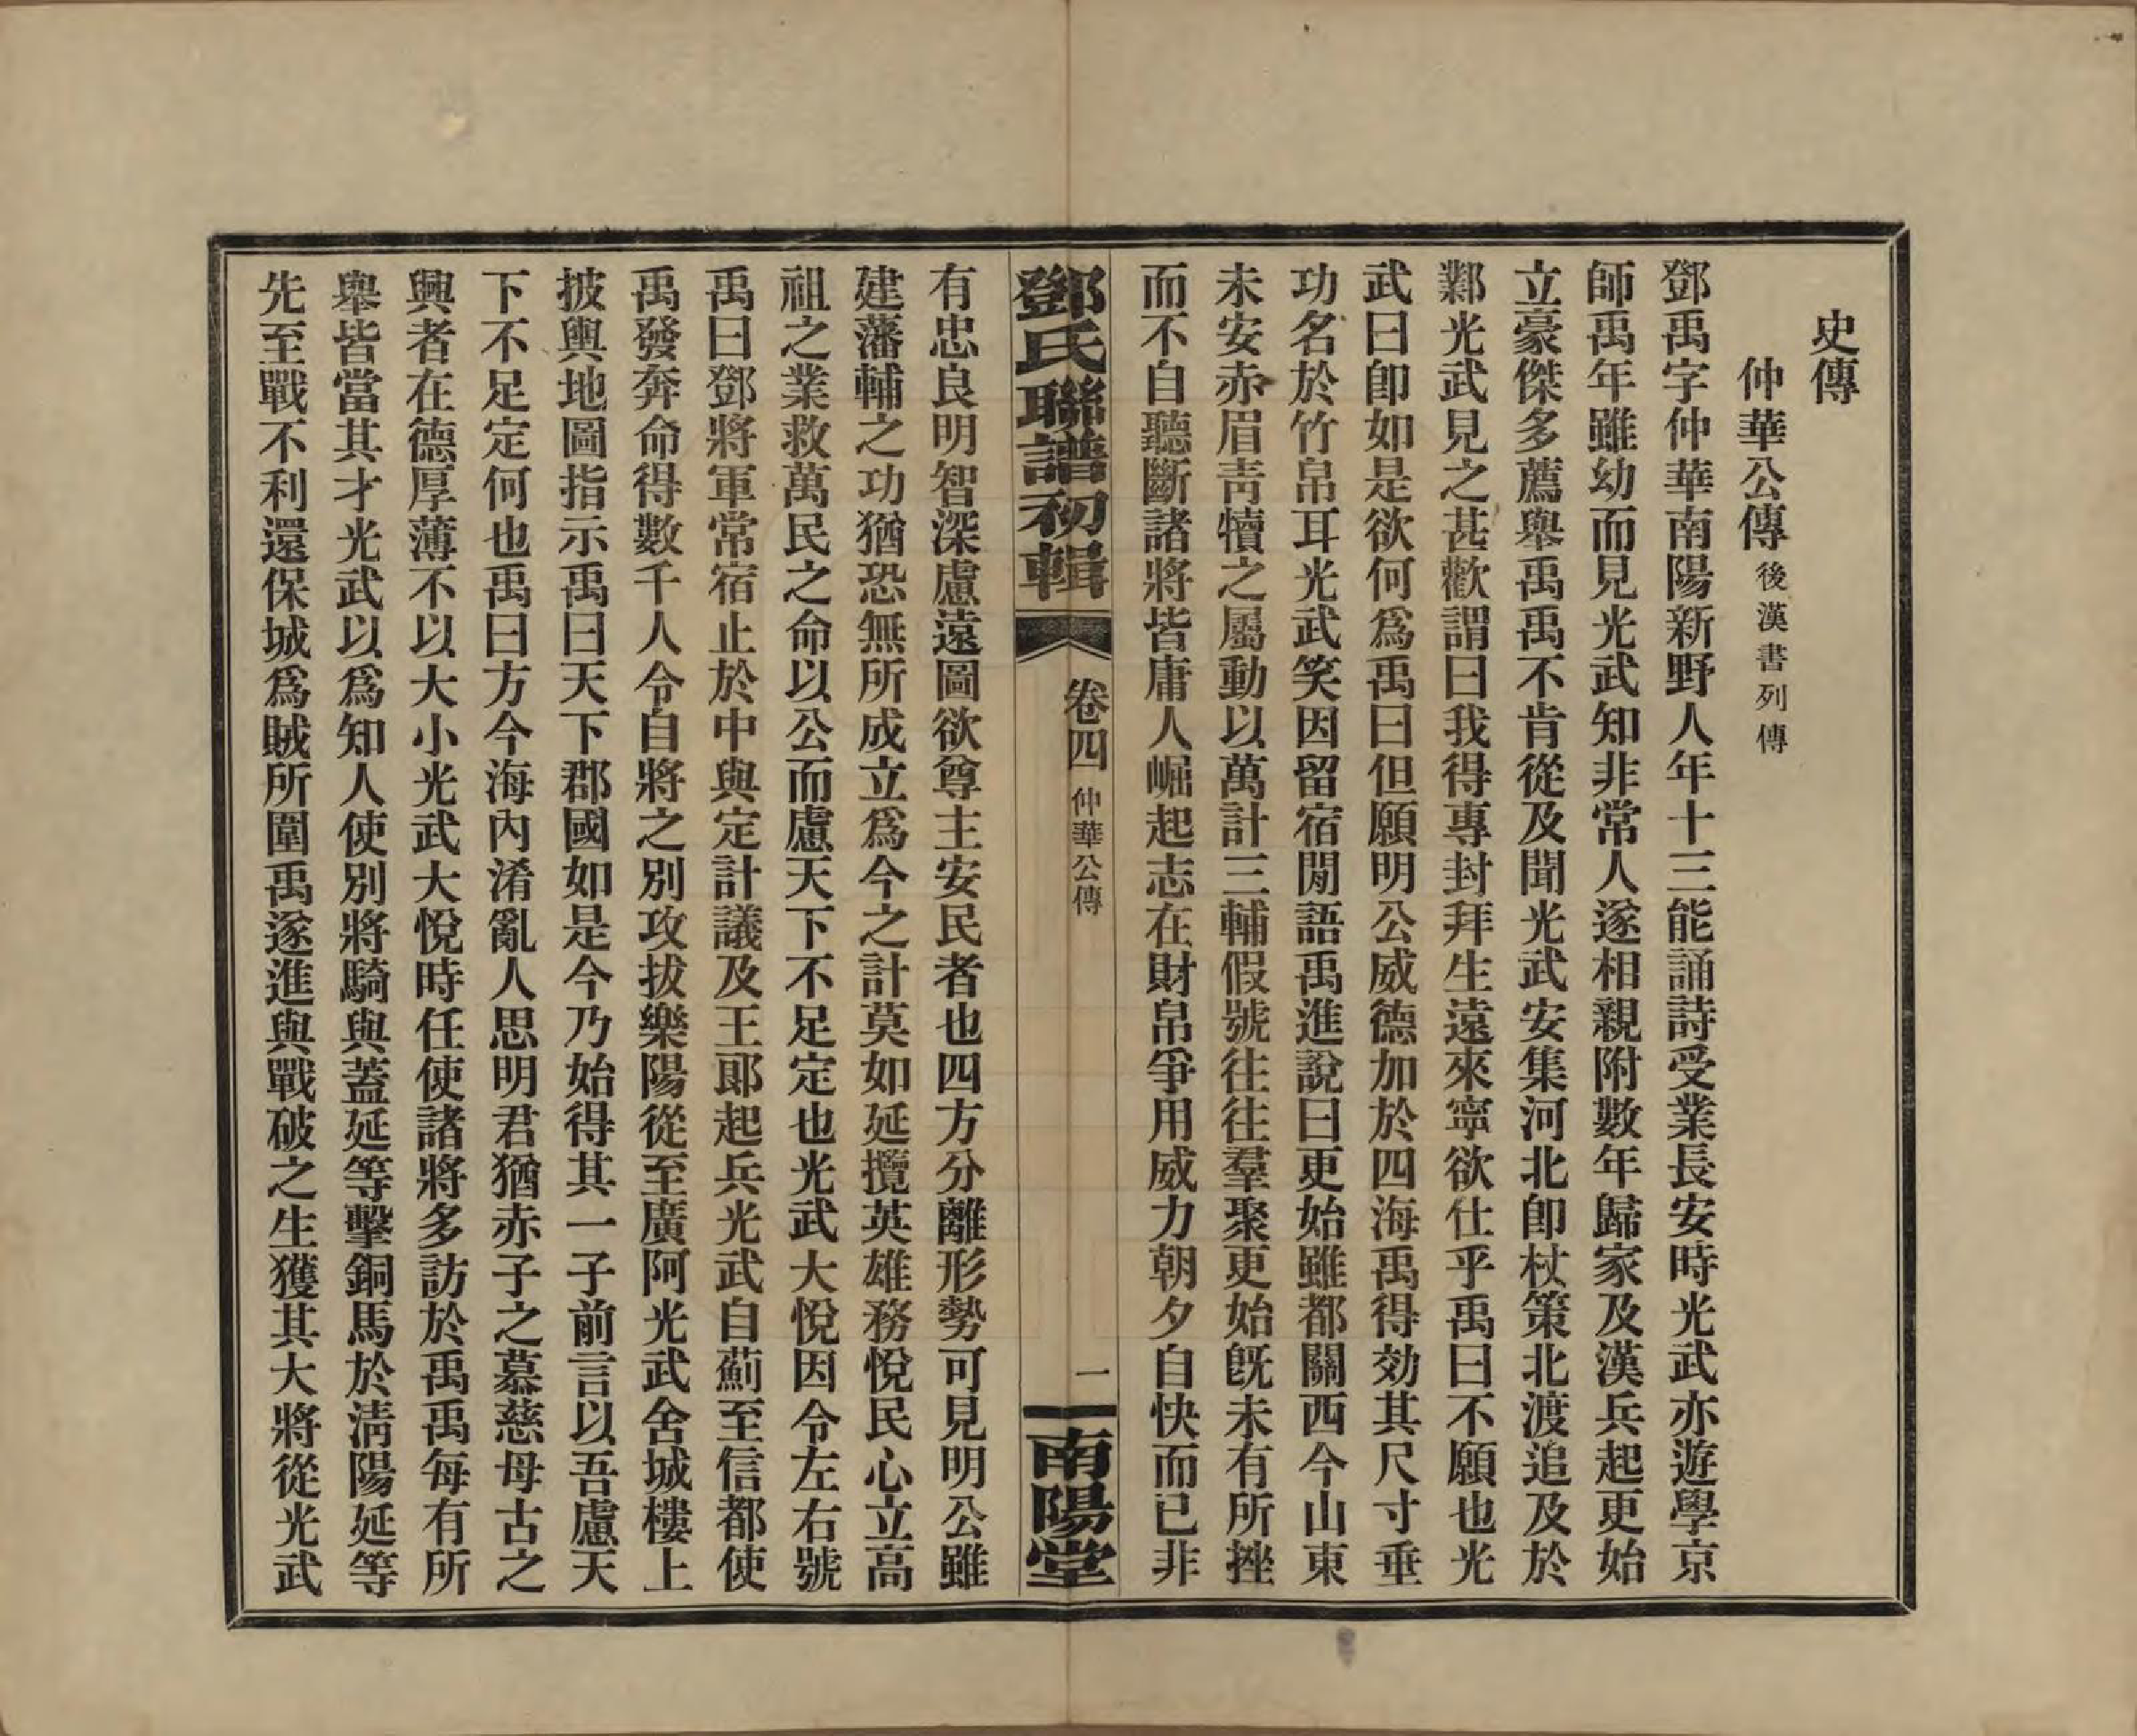 史傳
仲華公傳後漢書列傳
鄧禹字仲華南陽新野人年十三能誦詩受業長安時光武亦遊學京
師禹年雖幼而見光武知非常人遂相親附數年歸家及漢兵起更始
立豪傑多薦舉禹禹不肯從及聞光武安集河北卽杖策北渡追及於
鄴光武見之甚歡謂曰我得專封拜生遠來寧欲仕乎禹曰不願也光
武曰卽如是欲何爲禹曰但願明公威德加於四海禹得効其尺寸垂
功名於竹帛耳光武笑因留宿閒語禹進說曰更始雖都關西今山東
未安赤眉靑犢之屬動以萬計三輔假號往往羣聚更始旣未有所挫
而不自聽斷諸將皆庸人崛起志在財帛爭用威力朝夕自快而已非
鄧氏聯譜初輯
卷四
仲華公傳
一
南陽堂
有忠良明智深慮遠圖欲尊主安民者也四方分離形勢可見明公雖
建藩輔之功猶恐無所成立爲今之計莫如延攬英雄務悅民心立高
祖之業救萬民之命以公而慮天下不足定也光武大悅因令左右號
禹曰鄧將軍常宿止於中與定計議及王郎起兵光武自薊至信都使
禹發奔命得數千人令自將之別攻拔樂陽從至廣阿光武舍城樓上
披輿地圖指示禹曰天下郡國如是今乃始得其一子前言以吾慮天
下不足定何也禹曰方今海內淆亂人思明君猶赤子之慕慈母古之
興者在德厚薄不以大小光武大悅時任使諸將多訪於禹禹每有所
舉皆當其才光武以爲知人使別將騎與蓋延等擊銅馬於淸陽延等
先至戰不利還保城爲賊所圍禹遂進與戰破之生獲其大將從光武